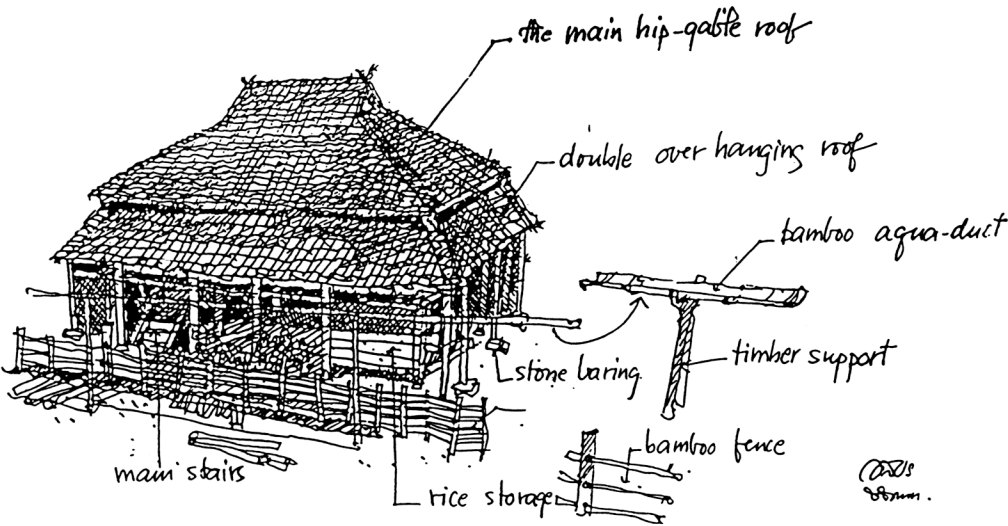 the main hip-gable roof
double over hanging roof
bamboo aqua-duct
timber support
stone baring
bamboo fence
main stairs
rice storage